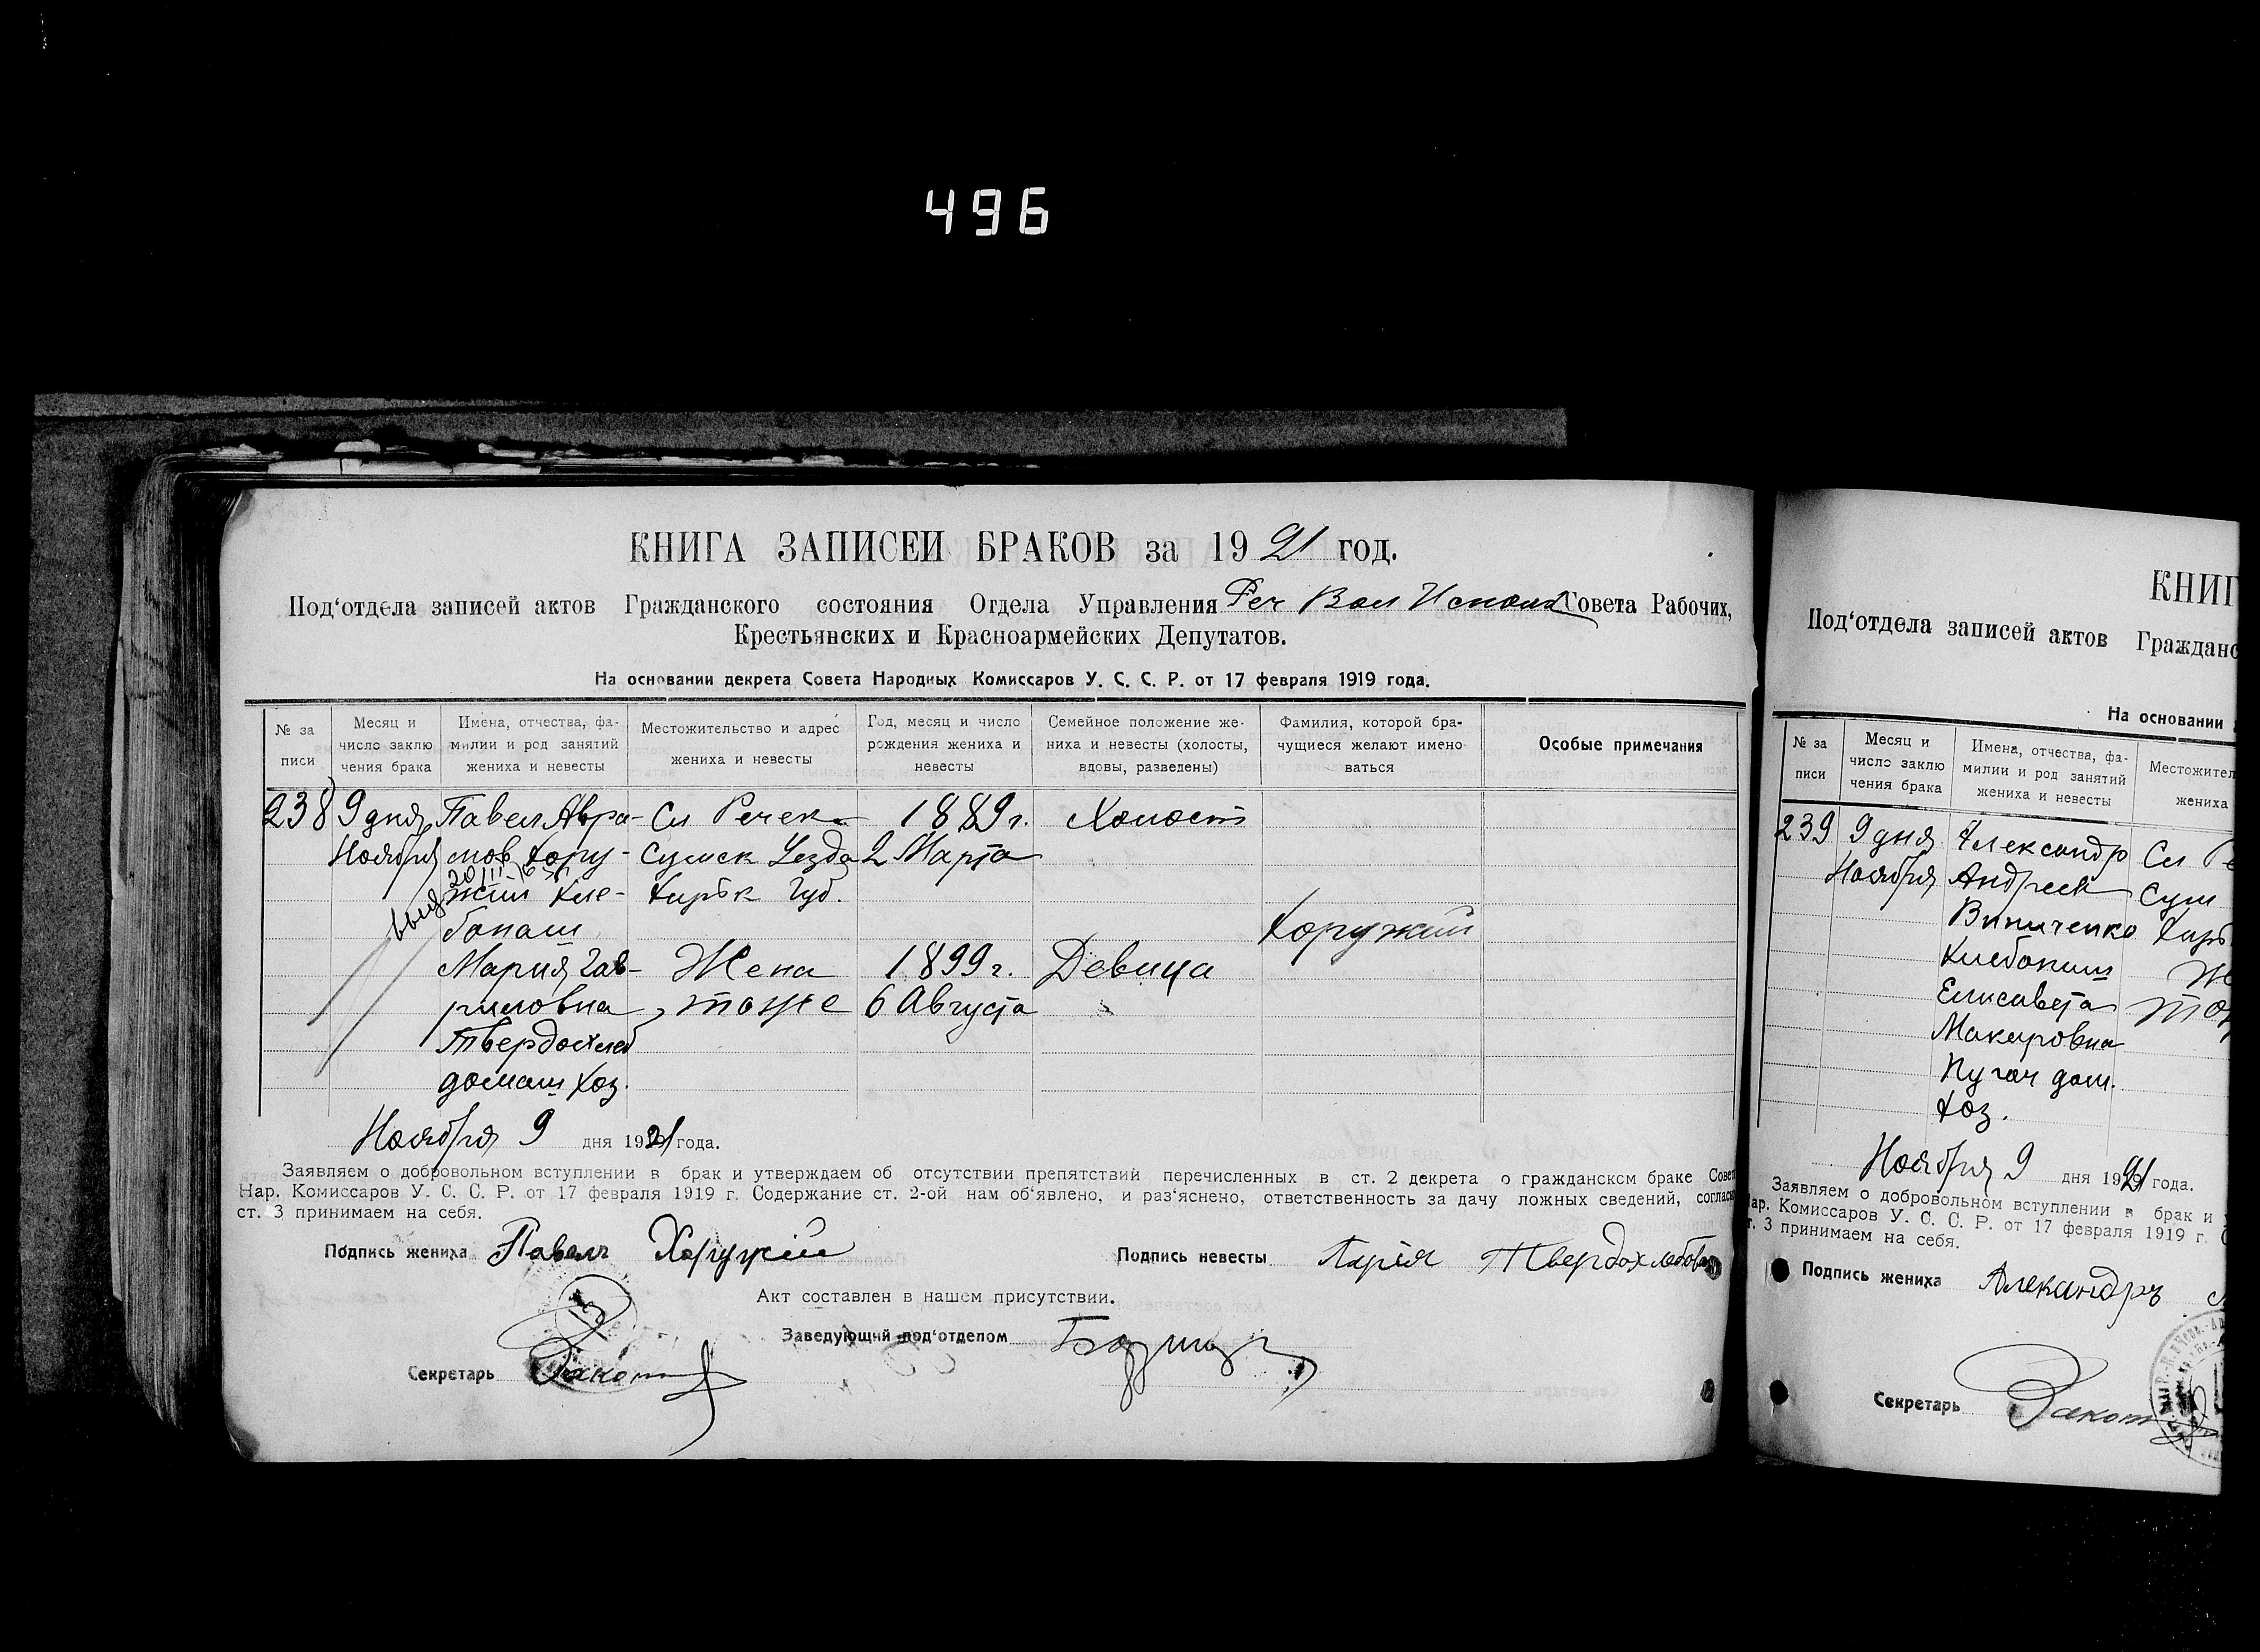 496
КНИГА ЗАПИСЕЙ БРАКОВ за 1921 год.
Под'отдела записей актов Гражданского состояния Отдела Управления Реч Вол Исполк Совета Рабочих,
Крестьянских и Красноармейских Депутатов.
На основании декрета Совета Народных Комиссаров У. С. С. Р. от 17 февраля 1919 года.
№ за писи
Месяц и число заклю чения брака
Имена, отчества, фа- милии и род занятий жениха и невесты
Местожительство и адрес жениха и невесты
Год, месяц и число рождения жениха и невесты
Семейное положение же- ниха и невесты (холосты, вдовы, разведены)
Фамилия, которой бра- чущиеся желают имено ваться
Особые примечания
238 9 дня Павел Авра- Сл Речек 1889 г. Холост
Ноября мов Хору- Сумск Уезда 2 Марта
жий Хле- Харьк Губ.
бопаш Хоружий
Мария Гав- Жена 1899 г. Девица
риловна тоже 6 Августа
Твердохлеб
домаш хоз.
Ноября 9 дня 1921 года.
Заявляем о добровольном вступлении в брак и утверждаем об отсутствии препятствий перечисленных в ст. 2 декрета о гражданском браке Совет
Нар. Комиссаров У. С. С. Р. от 17 февраля 1919 г. Содержание ст. 2-ой нам об'явлено, и раз'яснено, ответственность за дачу ложных сведений, соглас
ст. 3 принимаем на себя.
Подпись жениха Павелъ Хоружій Подпись невесты Марія Твердохлебова
Акт составлен в нашем присутствии.
Заведующий под'отделом
Секретарь
КНИГ
Под'отдела записей актов Гражданс
На основании
№ за писи
Месяц и число заклю чения брака
Имена, отчества, фа- милии и род занятий жениха и невесты
Местожител жениха
239 9 дня Александр Сл Ре
Ноября Андреев Сум
Винниченко Харь
Хлебопаш Же
Елисавета тож
Макаровна
Пугач дом.
хоз.
Ноября 9 дня 1921 года.
Заявляем о добровольном вступлении в брак и
Нар. Комиссаров У. С. С. Р. от 17 февраля 1919 г.
ст. 3 принимаем на себя.
Подпись жениха Алекандръ
Секретарь